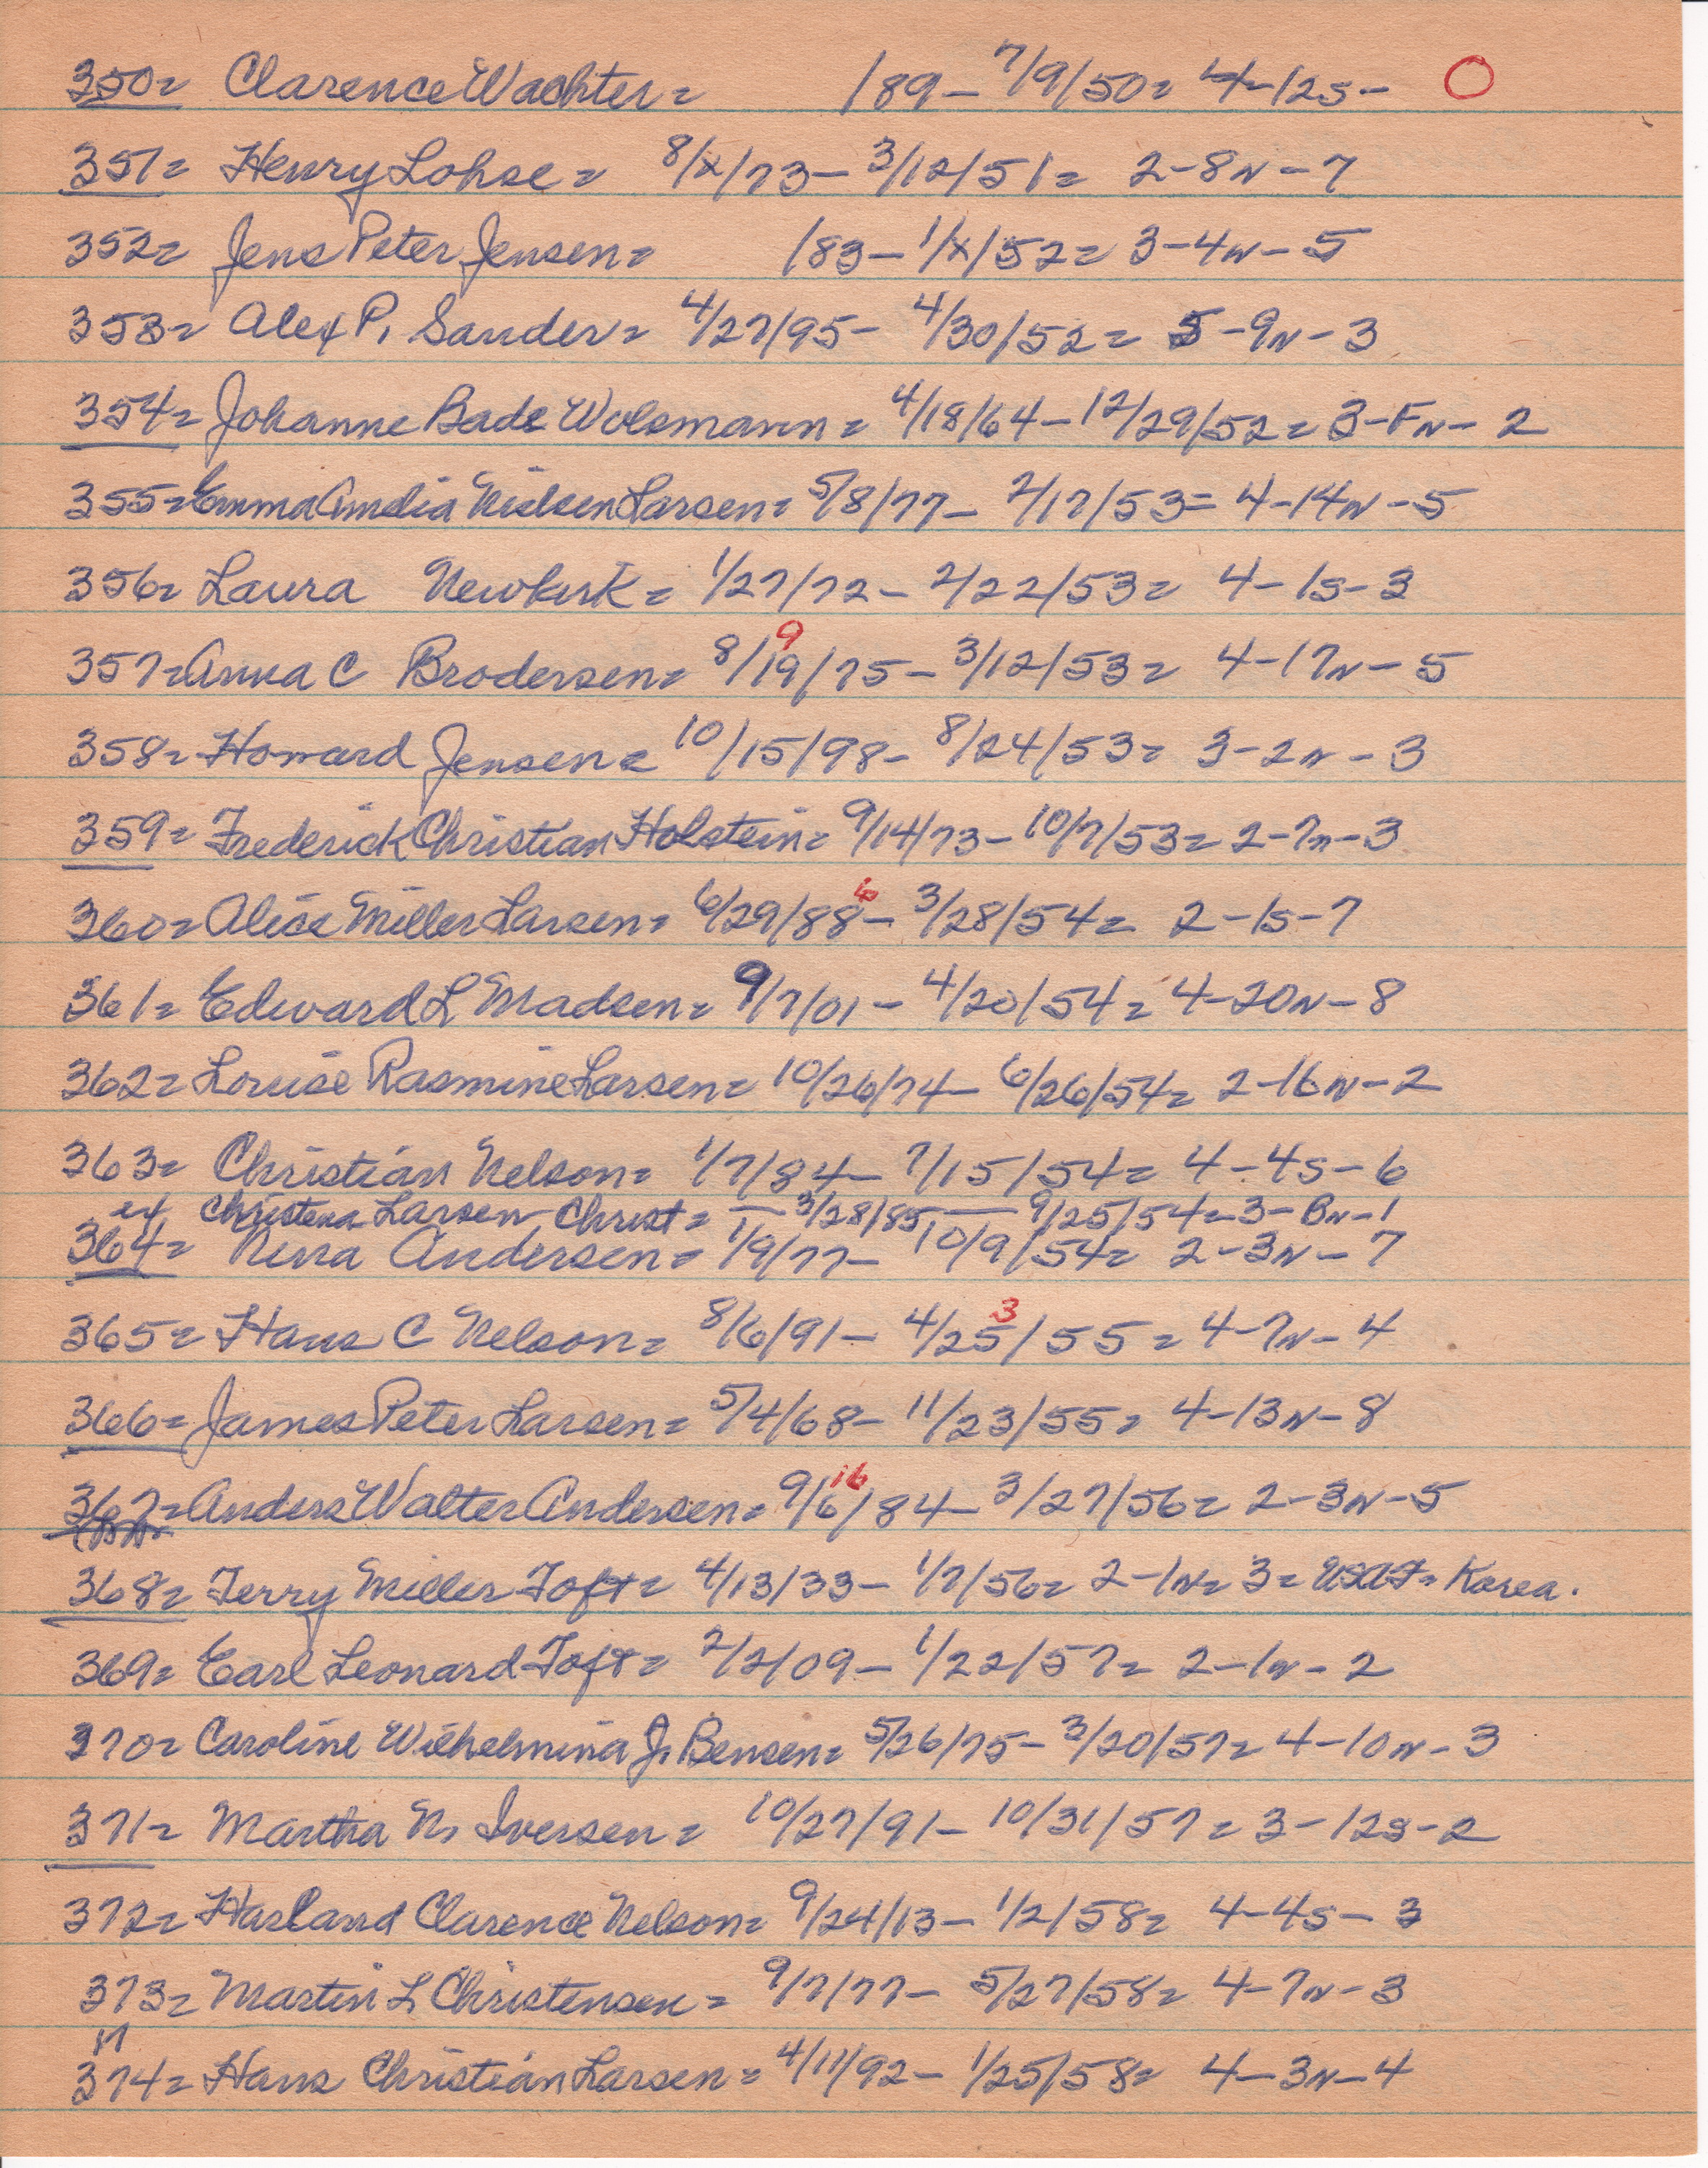 350= Clarence Wachter= /89- 7/9/50= 4-12s- O
351= Henry Lohse= 8/x/73- 3/12/51= 2-8N-7
352= Jens Peter Jensen= /83- 1/x/52= 3-4N-5
353= Alex P. Sander= 4/27/95- 4/30/52= 5-9N-3
354= Johanne Bade Wolsmann= 4/18/64- 12/29/52= 3-FN-2
355= Emma Amelia Nielsen Larsen= 5/8/77- 2/17/53= 4-14N-5
356= Laura Newkirk= 1/27/72- 2/22/53= 4-1s-3
9
357= Anna C Brodersen= 8/19/75- 3/12/53= 4-17N-5
358= Howard Jensen= 10/15/98- 8/24/53= 3-2N-3
359= Frederick Christian Holstein= 9/14/73- 10/7/53= 2-7N-3
6
360= Alice Miller Larsen= 6/29/88- 3/28/54= 2-1s-7
361= Edward L Madsen= 9/7/01- 4/20/54= 4-20N-8
362= Louise Rasmine Larsen= 10/26/74- 6/26/54= 2-16N-2
363= Christian Nelson= 1/7/84- 7/15/54= 4-4s-6
ex Christena Larsen Christ= 3/28/85 9/25/54=3-BN-1
364= Nina Andersen= 1/9/77- 10/9/54= 2-3N-7
3
365= Hans C Nelson= 8/6/91- 4/25/55= 4-7N-4
366= James Peter Larsen= 5/4/68- 11/23/55= 4-13N-8
16
367= Anders Walter Andersen= 9/6/84- 3/27/56= 2-3N-5
368= Terry Miller Toft= 4/13/33- 1/7/56= 2-1N= 3= USAF= Korea.
369= Earl Leonard Toft= 2/2/09- 1/22/57= 2-1N-2
370= Caroline Wilhelmina J. Bensen= 5/26/75- 3/20/57= 4-10N-3
371= Martha N. Iversen= 10/27/91- 10/31/57= 3-12s-2
372= Harland Clarence Nelson= 9/24/13- 1/2/58= 4-4s-3
373= Martin L Christensen= 9/7/77- 5/27/58= 4-7N-3
17
374= Hans Christian Larsen= 4/11/92- 1/25/58= 4-3N-4